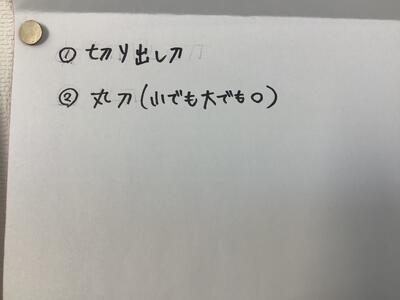 ① 切り出し刀
② 丸刀(小でも大でも○)